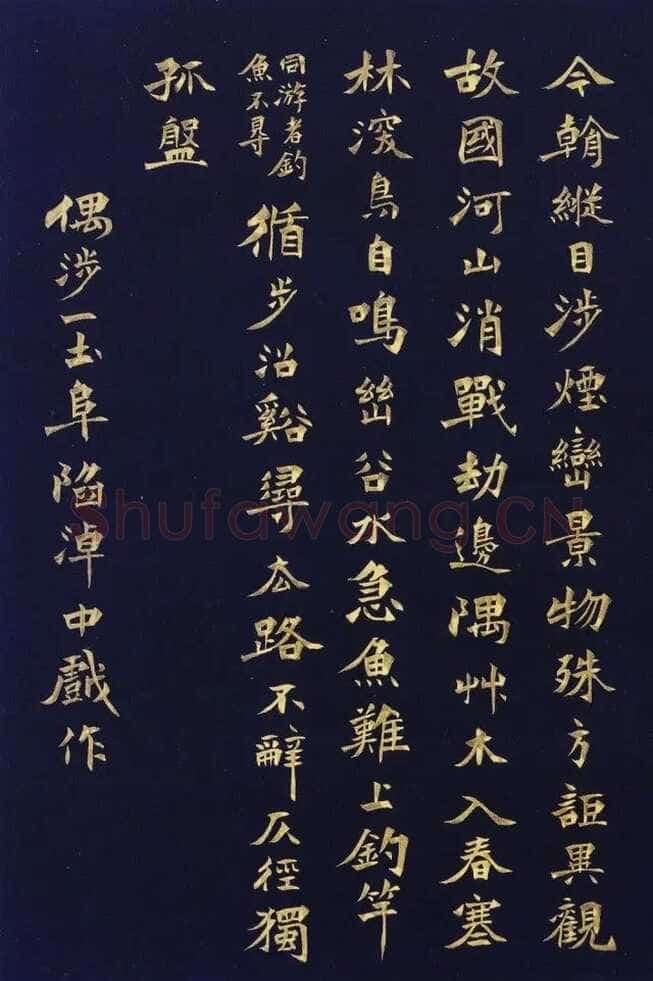 今朝縱目涉煙巒景物殊方詎異觀
故國河山消戰劫邊隅艸木入春寒
林深鳥自鳴幽谷水急魚難上釣竿
同游者釣
魚不㝵
循步沿谿尋去路不辭仄徑獨
孤盤
偶涉一土阜陷淖中戲作
Shufawang.CN